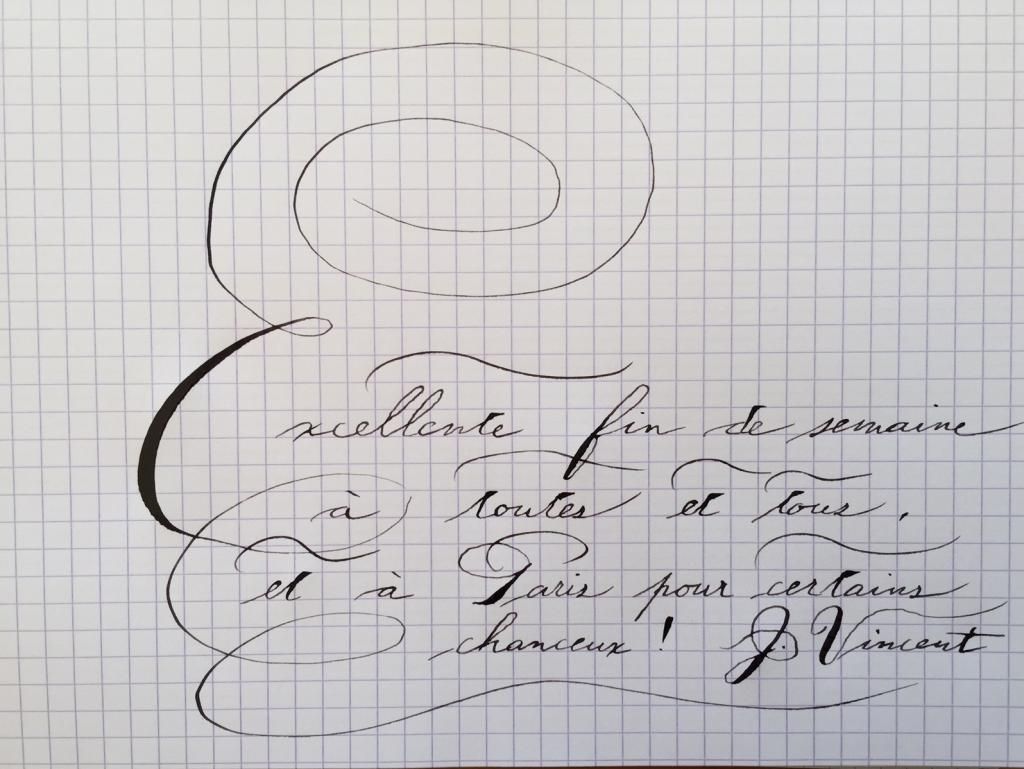 Excellente fin de semaine
à toutes et tous,
et à Paris pour certains
chanceux ! J. Vincent